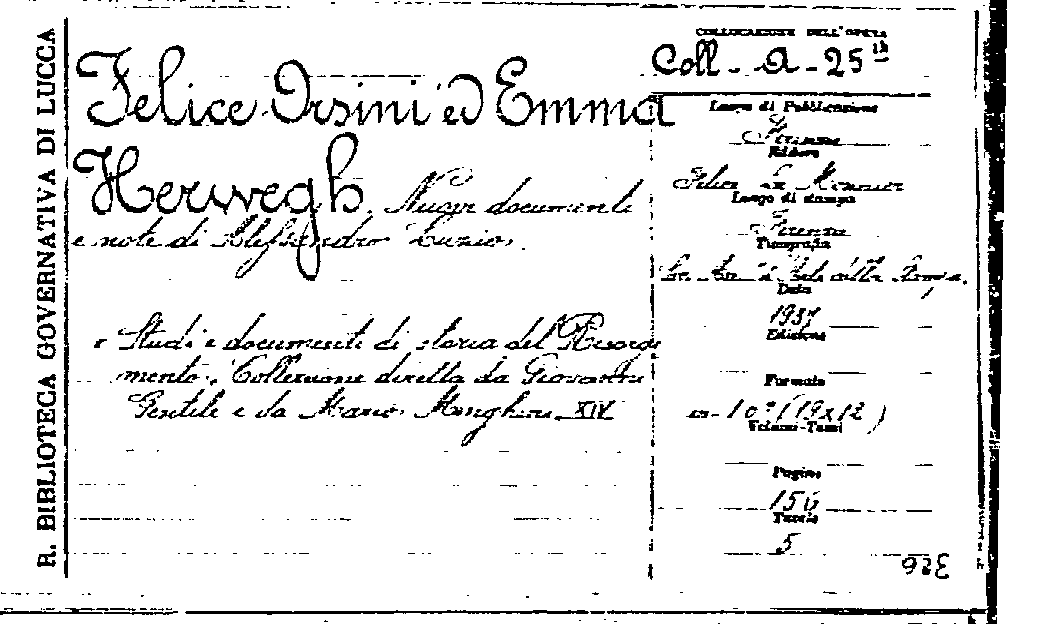 R. BIBLIOTECA GOVERNATIVA DI LUCCA
Felice Orsini ed Emma
Herwegh. Nuovi documenti
e note di Alessandro Luzio.
« Studi e documenti di storia del Risorgi
mento. Collezione diretta da Giovanni
Gentile e da Mario Menghini XIV
COLLOCAZIONE DELL'OPERA
Coll - A - 25
Luogo di Pubblicazione
Firenze
Editore
Felice Le Monnier
Luogo di stampa
Firenze
Tipografia
Data
1937
Edizione
Formato
in-16° (19x12)
Volumi-Tomi
Pagine
156
Tavole
5
326